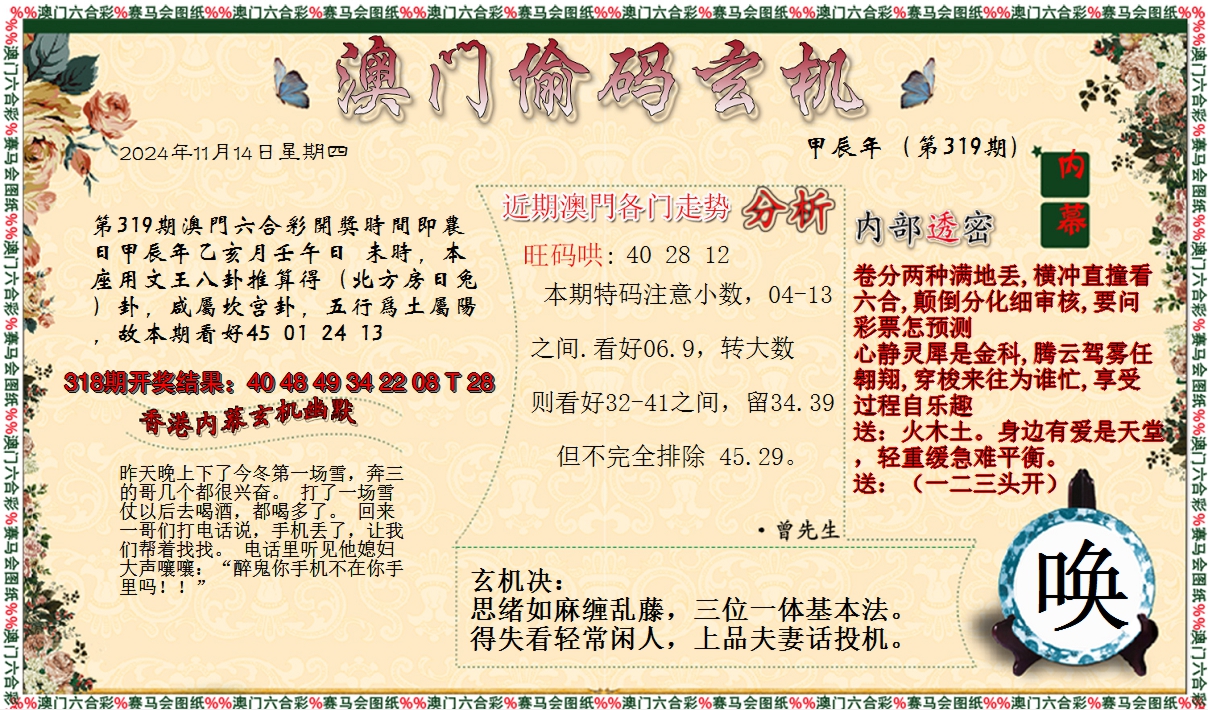 %%澳门六合彩%赛马会图纸%%澳门六合彩%赛马会图纸%%澳门六合彩%赛马会图纸%%澳门六合彩%赛马会图纸%%澳门六合彩%赛马会图纸%%澳门六合彩%赛马会图纸%%
澳门偷码玄机
2024年11月14日星期四
甲辰年（第319期）
第319期澳門六合彩開獎時間即農
日甲辰年乙亥月壬午日 未時，本
座用文王八卦推算得（北方房日兔
）卦，咸屬坎宫卦，五行爲土屬陽
，故本期看好45 01 24 13
318期开奖结果：40 48 49 34 22 08 T 28
香港内幕玄机幽默
昨天晚上下了今冬第一场雪，奔三
的哥几个都很兴奋。 打了一场雪
仗以后去喝酒，都喝多了。 回来
一哥们打电话说，手机丢了，让我
们帮着找找。 电话里听见他媳妇
大声嚷嚷：“醉鬼你手机不在你手
里吗！！”
近期澳門各门走势 分析
旺码哄: 40 28 12
本期特码注意小数，04-13
之间.看好06.9，转大数
则看好32-41之间，留34.39
但不完全排除 45.29。
·曾先生
玄机决：
思绪如麻缠乱藤，三位一体基本法。
得失看轻常闲人，上品夫妻话投机。
内幕
内部透密
卷分两种满地丢,横冲直撞看
六合,颠倒分化细审核,要问
彩票怎预测
心静灵犀是金科,腾云驾雾任
翱翔,穿梭来往为谁忙,享受
过程自乐趣
送：火木土。身边有爱是天堂
，轻重缓急难平衡。
送：（一二三头开）
唤
%%澳门六合彩%赛马会图纸%%澳门六合彩%赛马会图纸%%澳门六合彩%赛马会图纸%%澳门六合彩%赛马会图纸%%澳门六合彩%赛马会图纸%%澳门六合彩%赛马会图纸%%